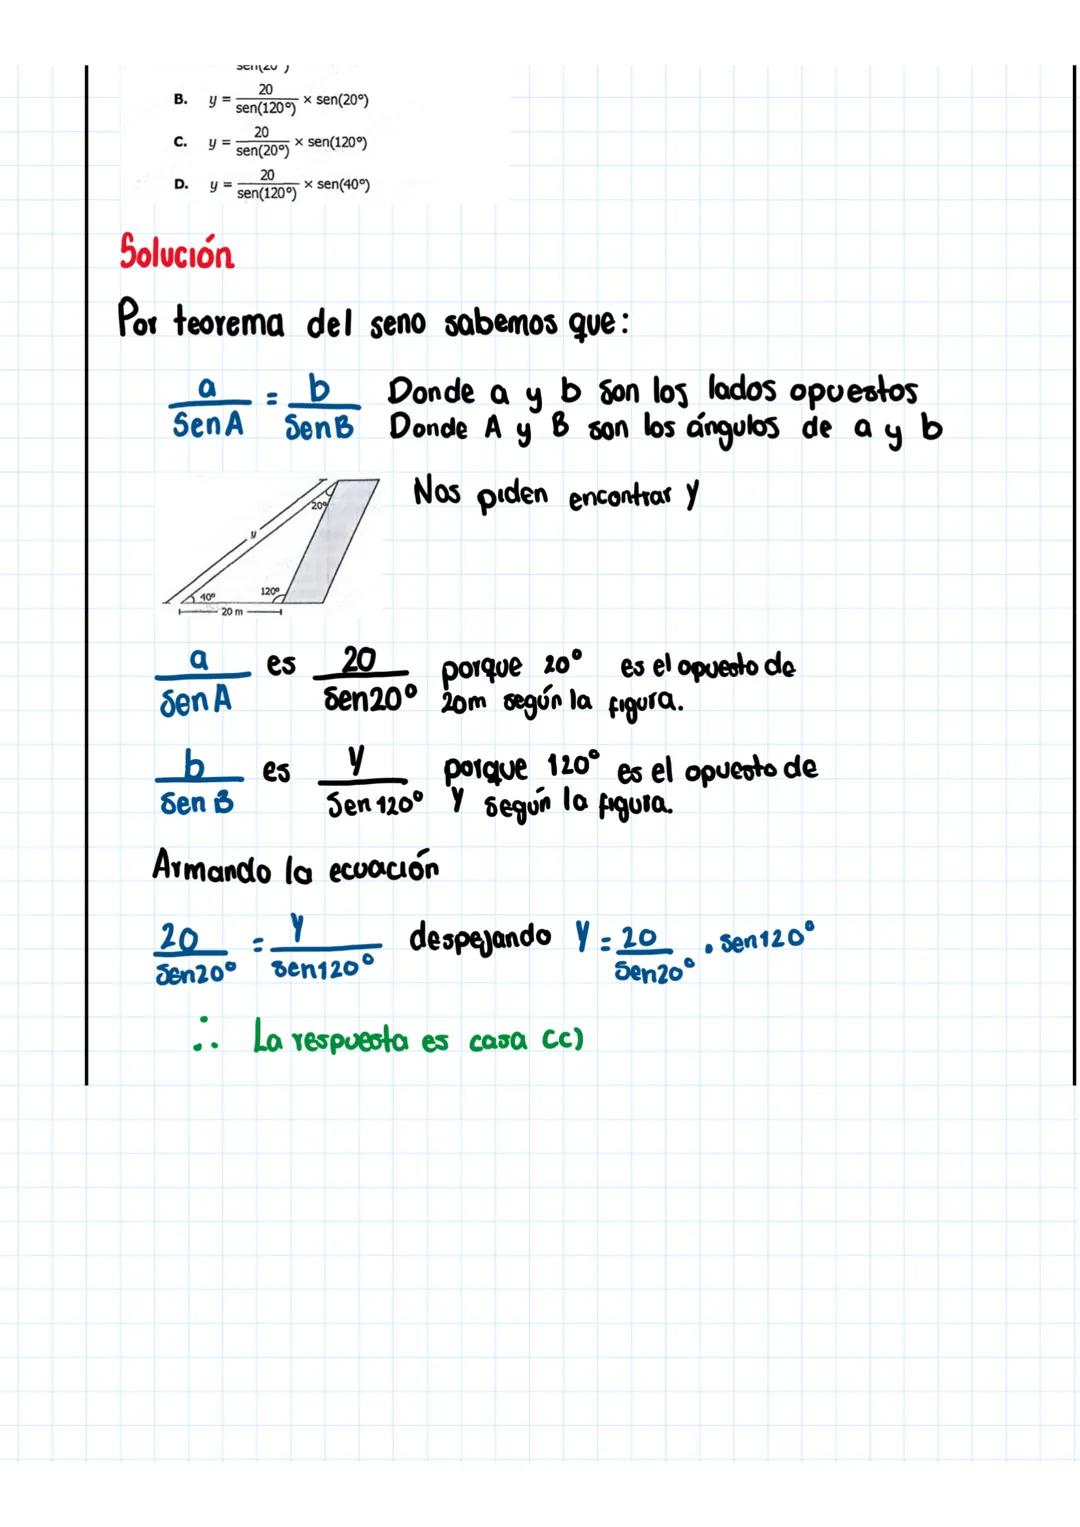 sen(20°)
B. y = 20/sen(120°) × sen(20°)
C. y = 20/sen(20°) × sen(120°)
D. y = 20/sen(120°) × sen(40°)
Solución
Por teorema del seno sabemos que:
a/Sen A = b/Sen B Donde a y b son los lados opuestos
Donde A y B son los ángulos de a y b
Nos piden encontrar y
20°
y
40° 120°
20 m
a/Sen A es 20/Sen20° porque 20° es el opuesto de
20m según la figura.
b/Sen B es y/Sen 120° porque 120° es el opuesto de
y según la figura.
Armando la ecuación
20/Sen20° = y/Sen120° despejando y = 20/Sen20° . Sen120°
∴ La respuesta es casa Cc)